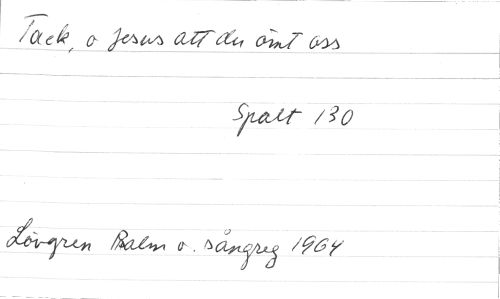 Tack, o Jesus att du ömt oss
Spalt 130
Lövgren Psalm o. sångreg 1964